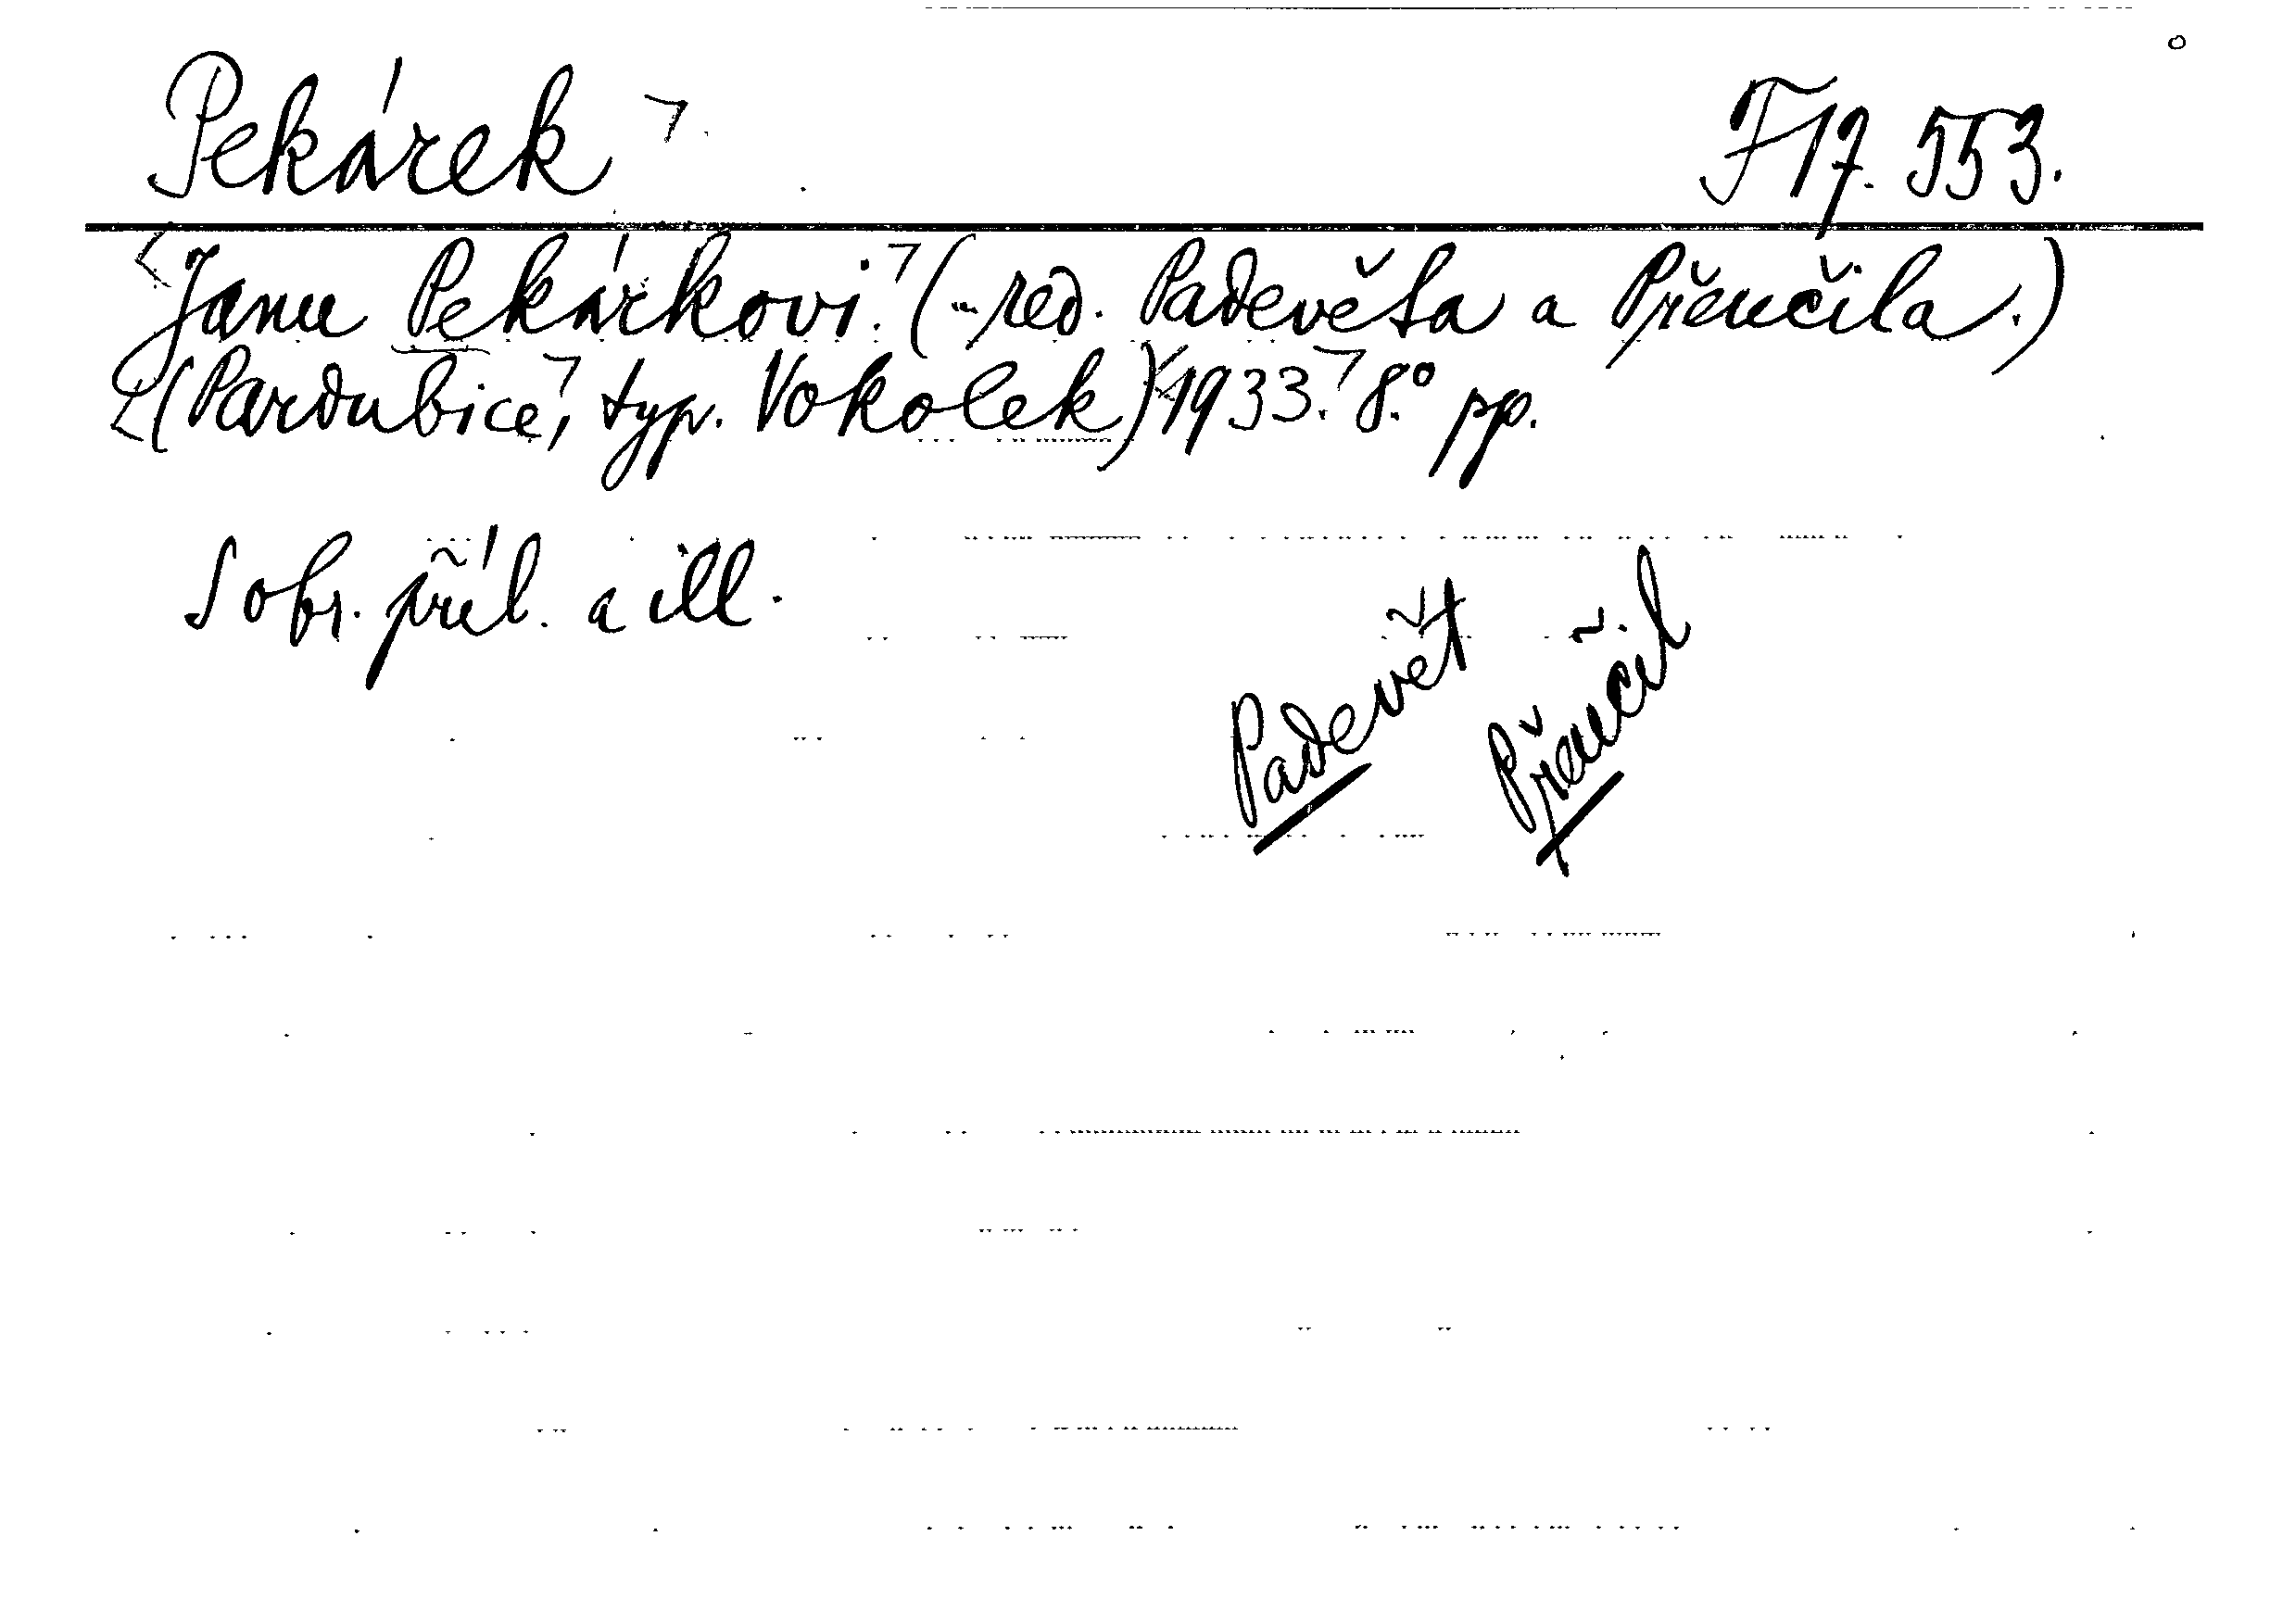 Pekárek F 17. 553.
Janu Pekárkovi. (... red. Padevěta a Přeučila.)
(Pardubice, typ. Vokolek) 1933. 8.° pp.
S obr. příl. a ill.
Padevět
Přeučil